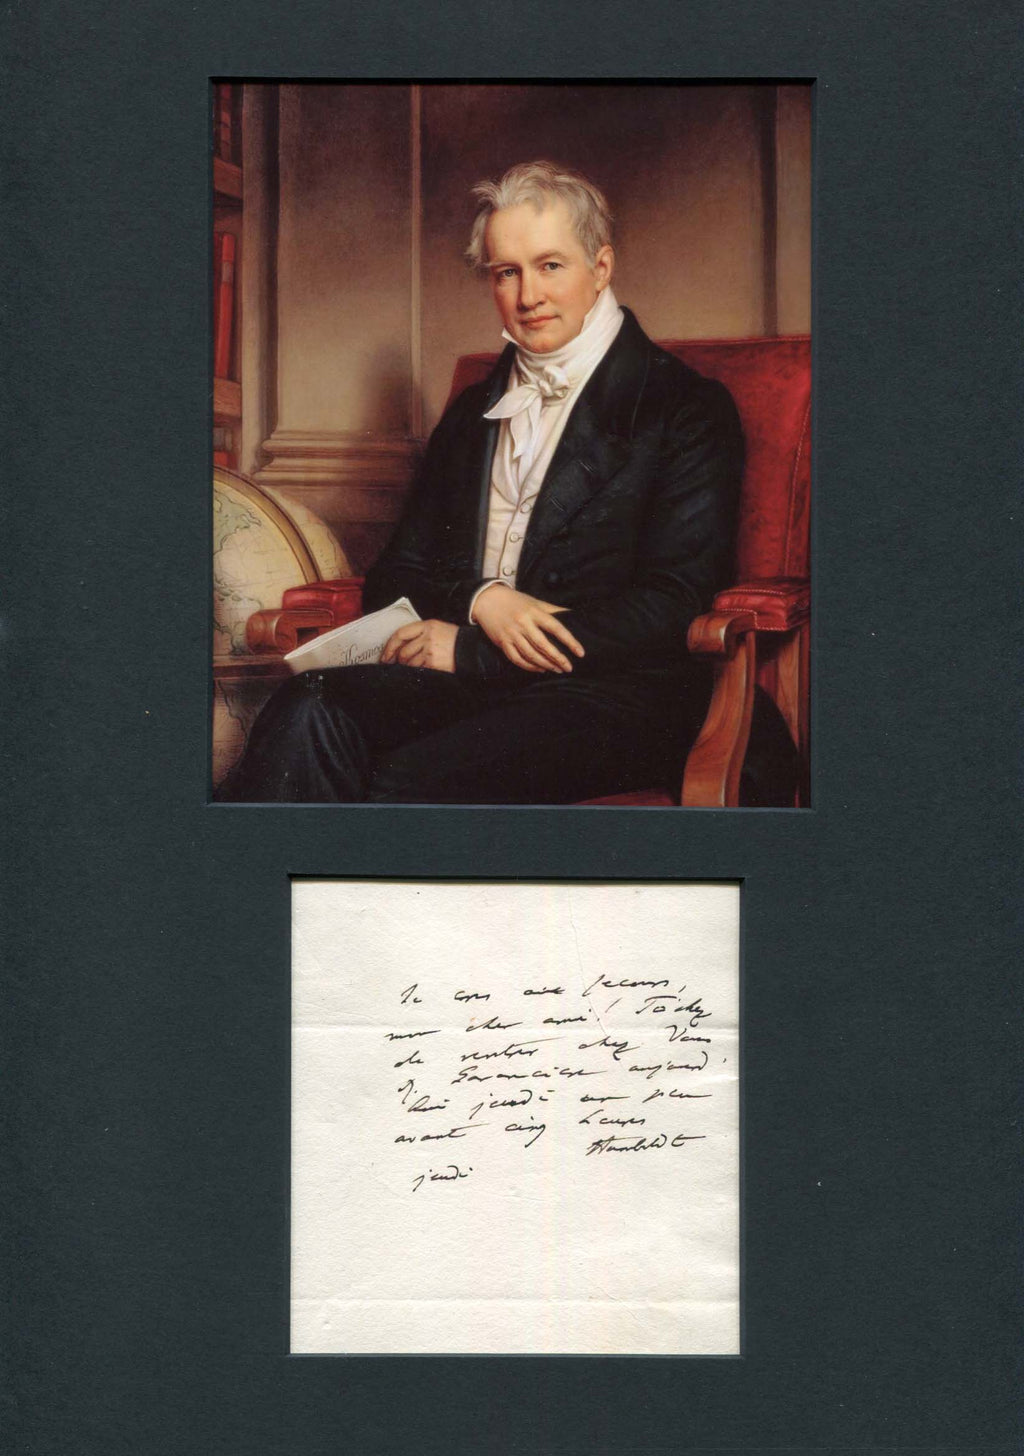 Kosmos
Je cours aux secours,
mon cher ami! Tachez
de rentrer chez Vous
r. Garancière aujourd'
hui jeudi un peu
avant cinq heures
Humboldt
jeudi